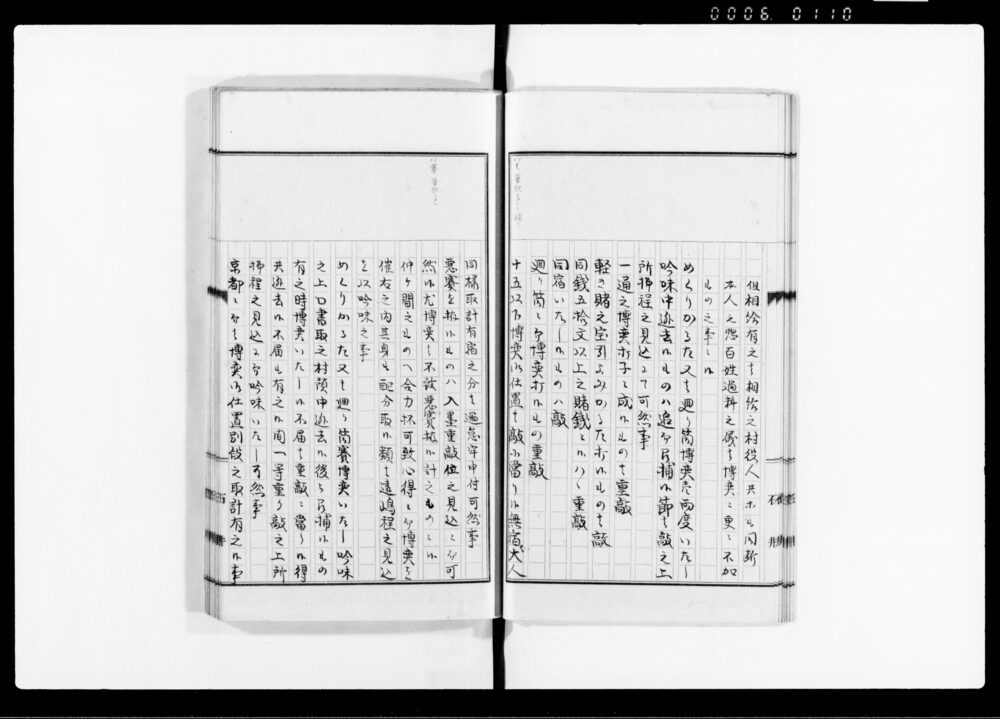 0006 0110
但相給有之は相給之村役人共ホも同断
本人之惣百姓過料之儀は博奕ニ更ニ不加
もの之事ニ候
めくりかるた又は廻り筒博奕壱両度いたし
吟味中逃去候もの追而召捕候節は敲之上
所拂程之見込ニ而可然事
一通之博奕打子ニ成候ものは重敲
軽き賭之宝引よみかるた打候ものは敲
同銭五拾文以上之賭銭ニ候ハヽ重敲
同宿いたし候もの敲
廻り筒ニ而博奕打候もの重敲
十五以下博奕御仕置は敲ニ當り候無宿大人
同様取計有宿之分は過怠牢申付可然事
悪賽を拵候ものハ入墨重敲位之見込ニ而可
然候尤博奕ハ不致悪賽拵候計之ものニ候
仲ヶ間之ものへ合力抔可致心得ニ而博奕を
催右之内其身も配分取候類は遠嶋程之見込
を以吟味之事
めくりかるた又は廻り筒賽博奕いたし吟味
之上口書取之村預中逃去候後召捕候もの
有之時博奕いたし候不届は重敲ニ當り候得
共逃去候不届も有之候間一等重く敲之上所
拂程之見込ニ而吟味いたし可然事
京都ニ而は博奕御仕置別段之取計有之候事